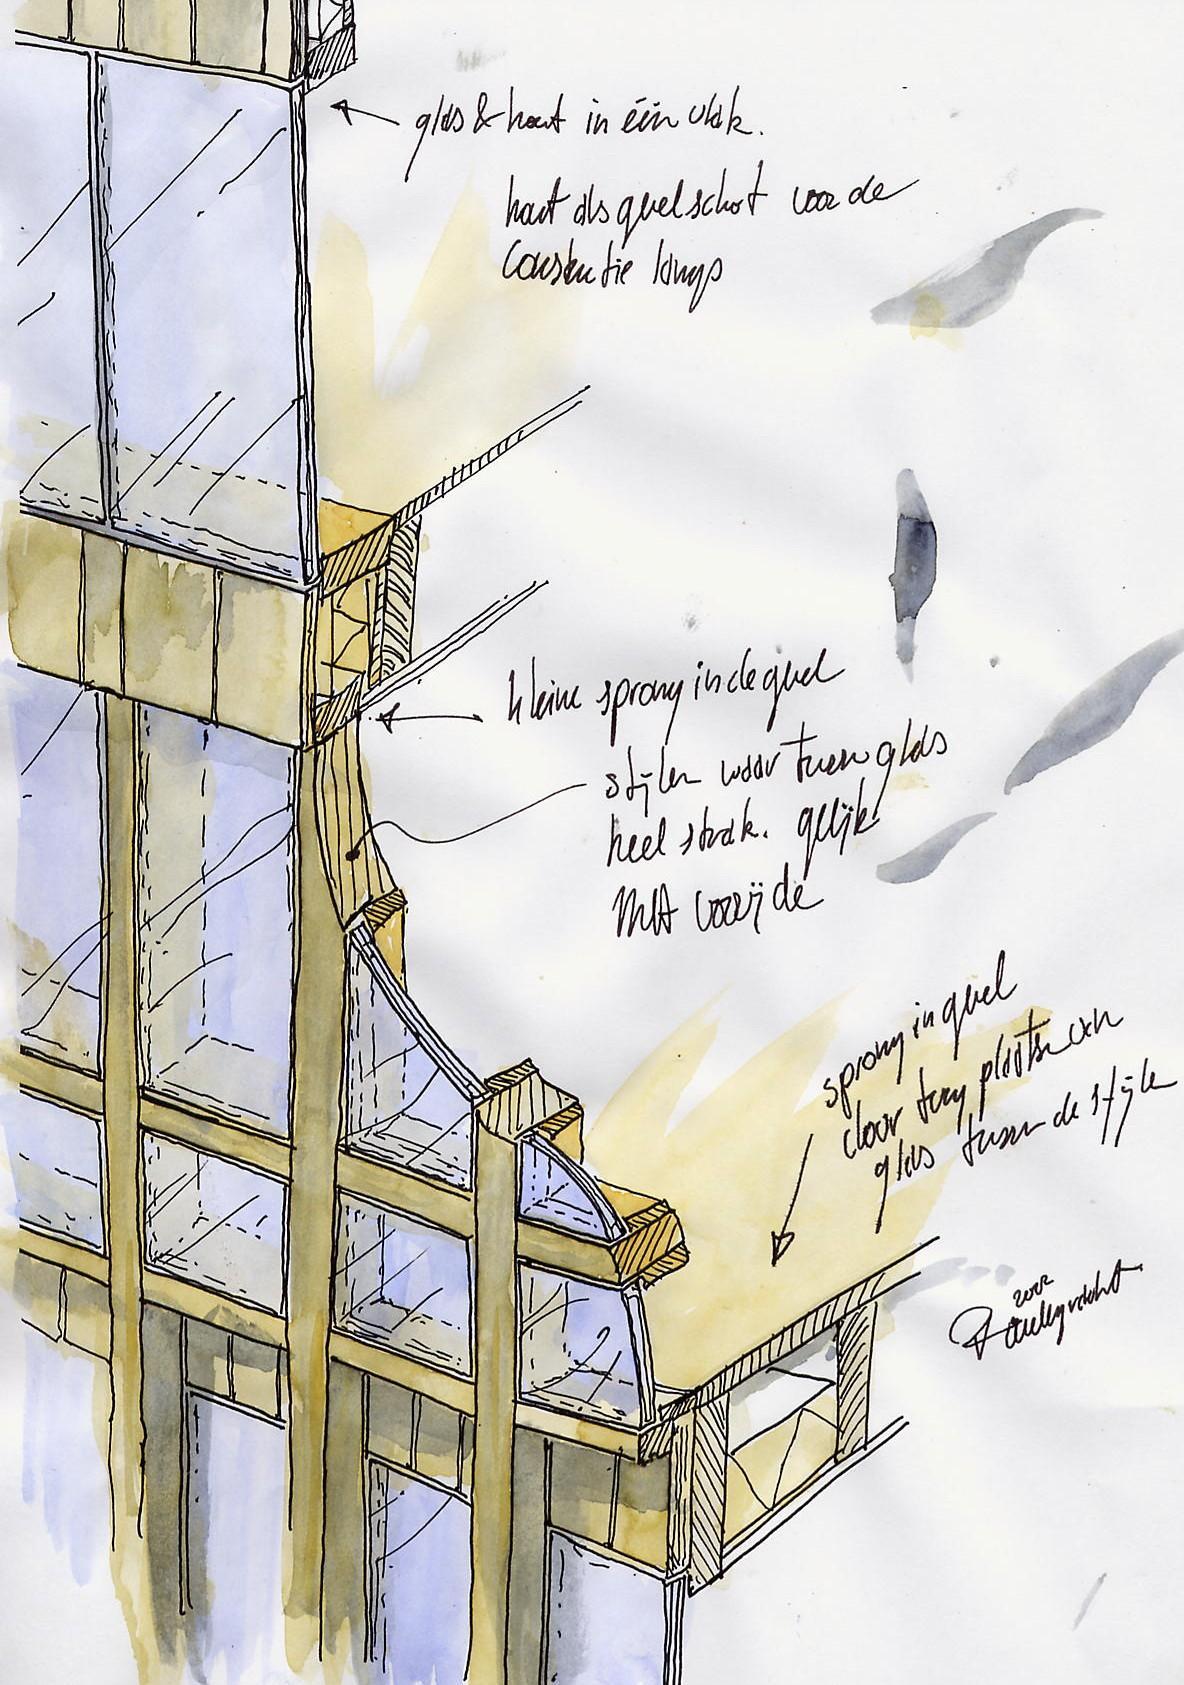 glas & hout in één vlak.
hout als gevelschot voor de
constructie langs
kleine sprong in de gevel
stijlen waar tussen glas
heel strak. gelijk
met voorzijde
sprong in gevel
door terug plaatsen van
glas tussen de stijlen
2002